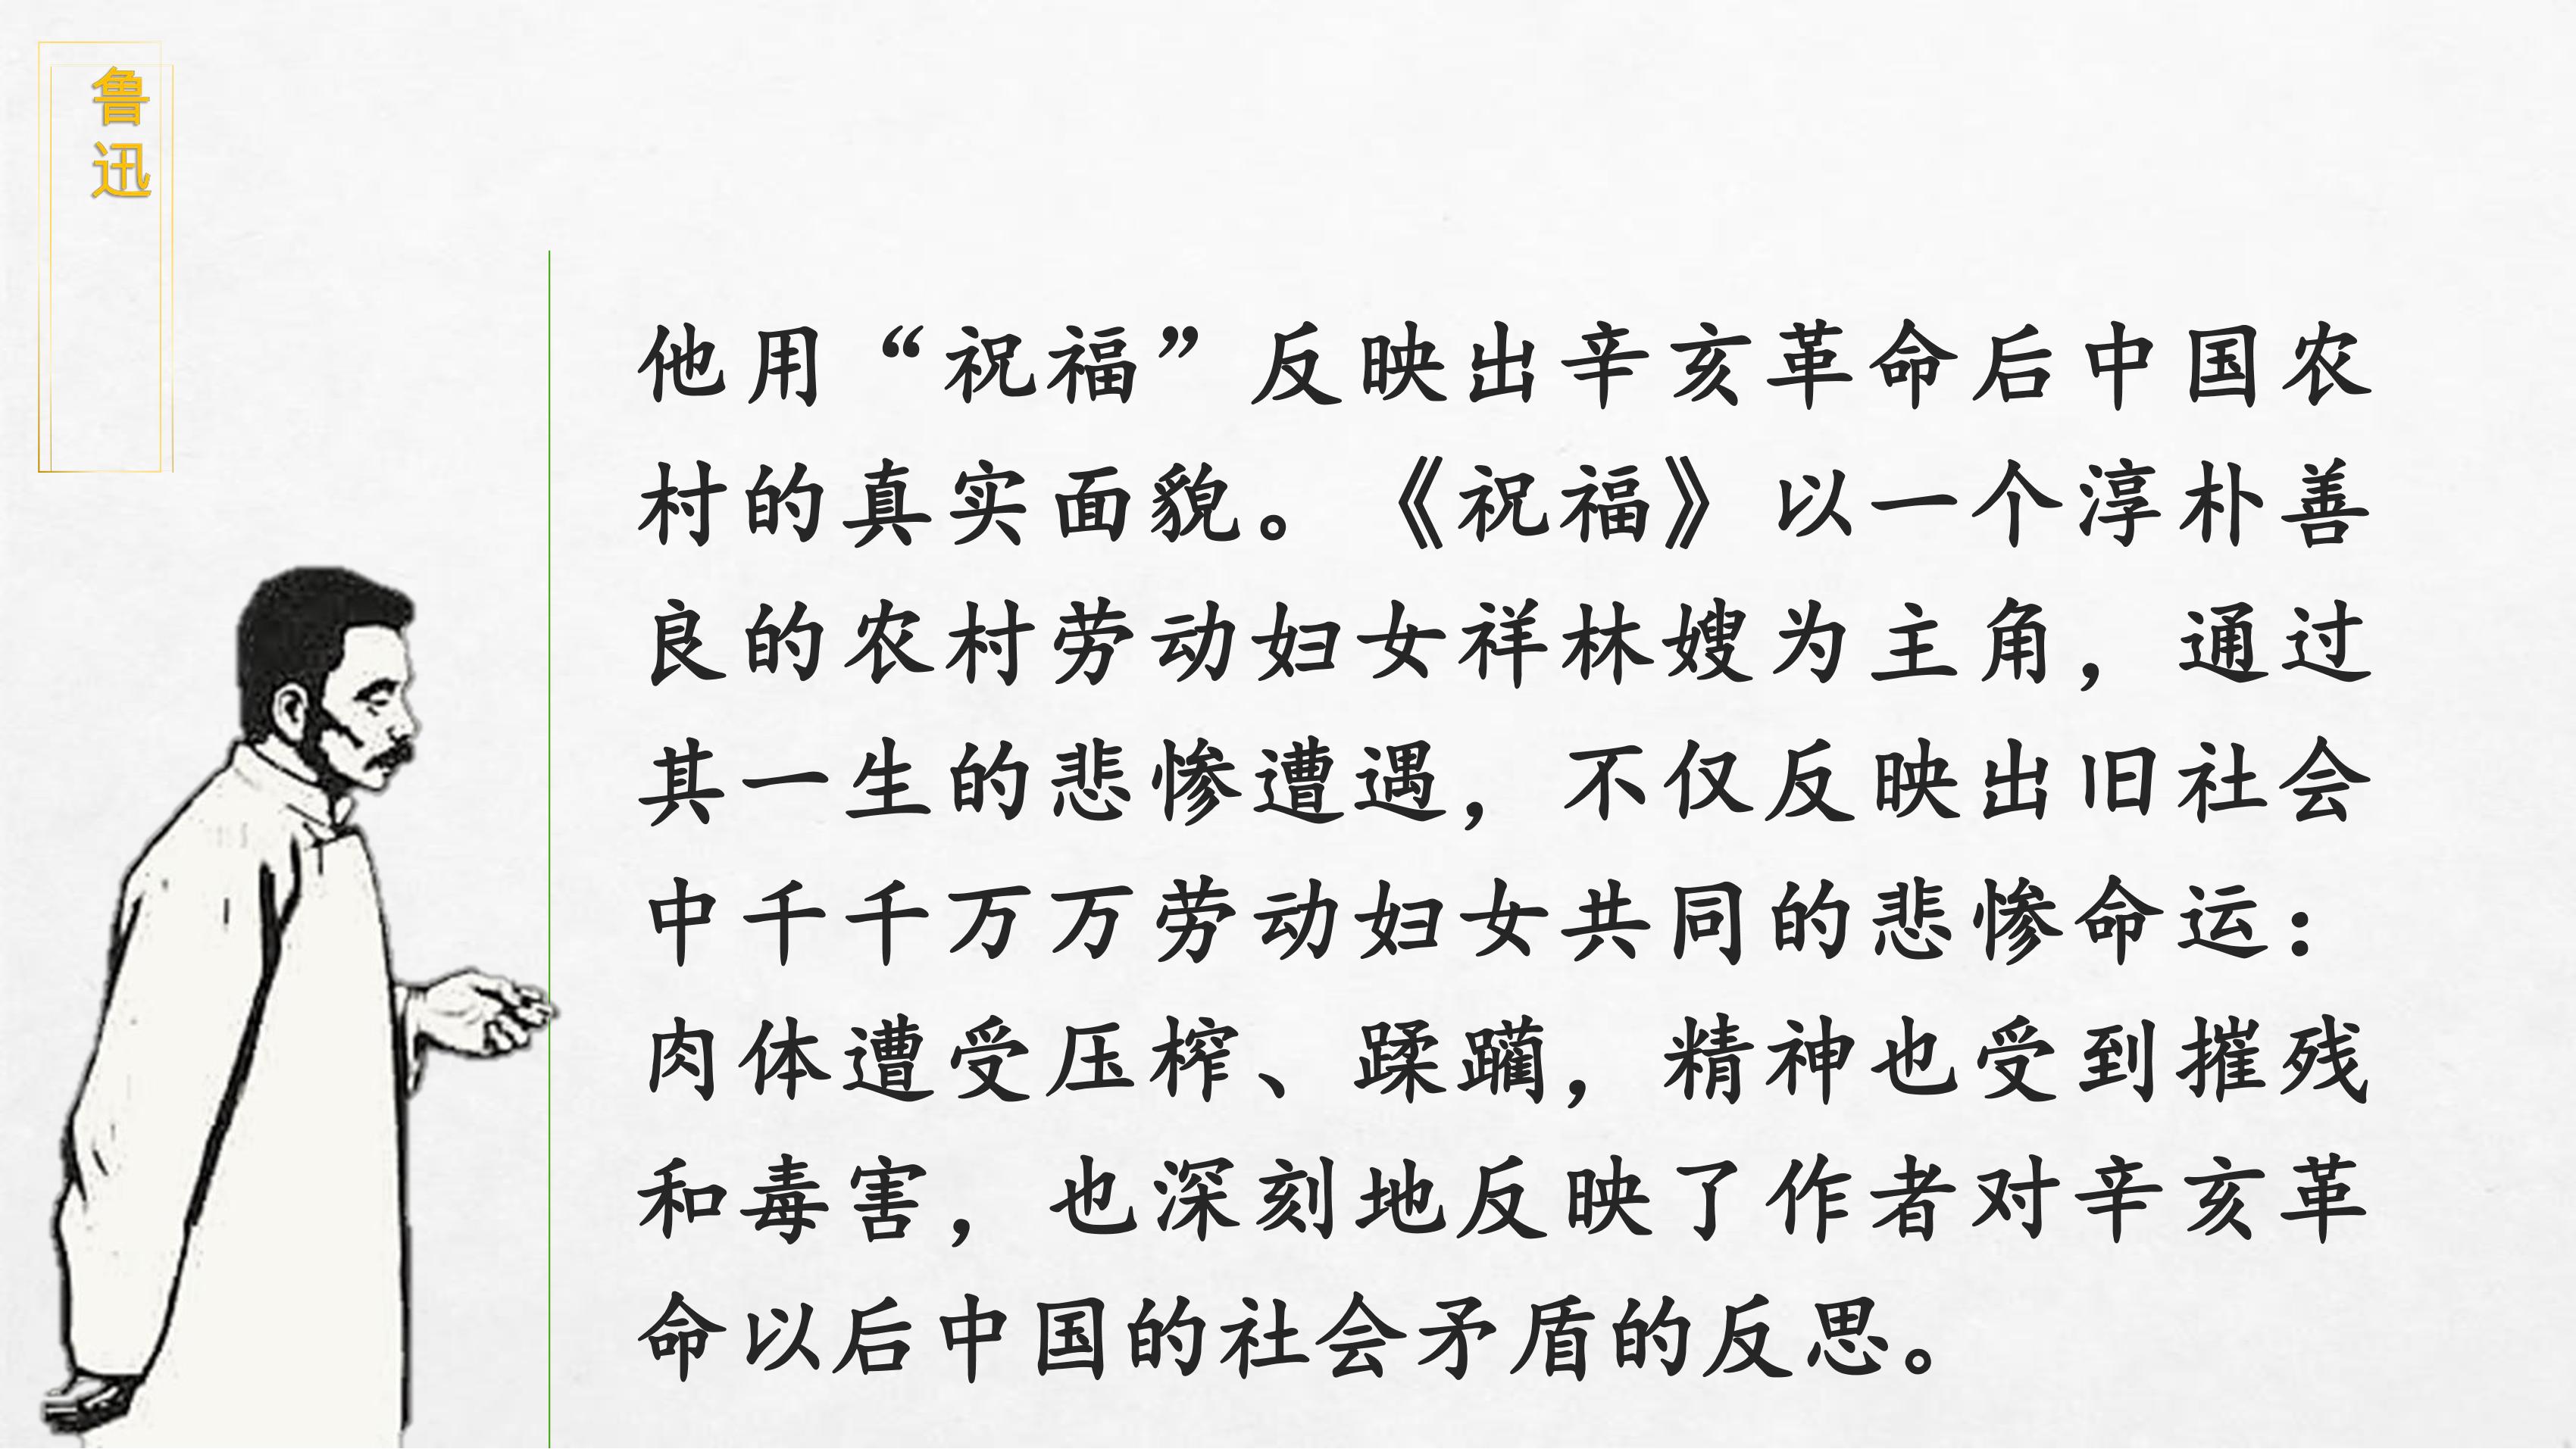 鲁迅
他用“祝福”反映出辛亥革命后中国农
村的真实面貌。《祝福》以一个淳朴善
良的农村劳动妇女祥林嫂为主角，通过
其一生的悲惨遭遇，不仅反映出旧社会
中千千万万劳动妇女共同的悲惨命运：
肉体遭受压榨、蹂躏，精神也受到摧残
和毒害，也深刻地反映了作者对辛亥革
命以后中国的社会矛盾的反思。